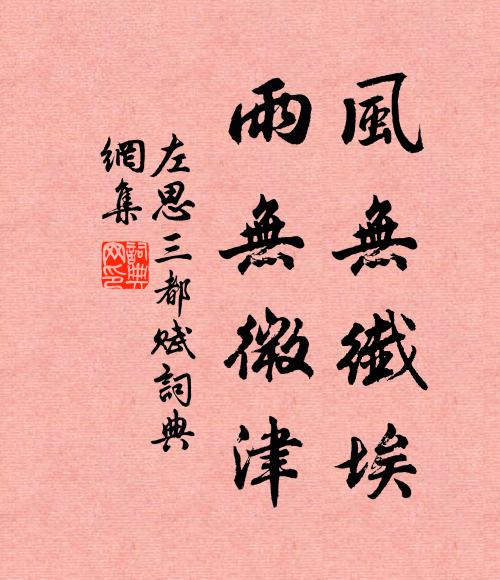 風無纖埃
雨無微津
左思三都賦詞典
網集
詞典网印